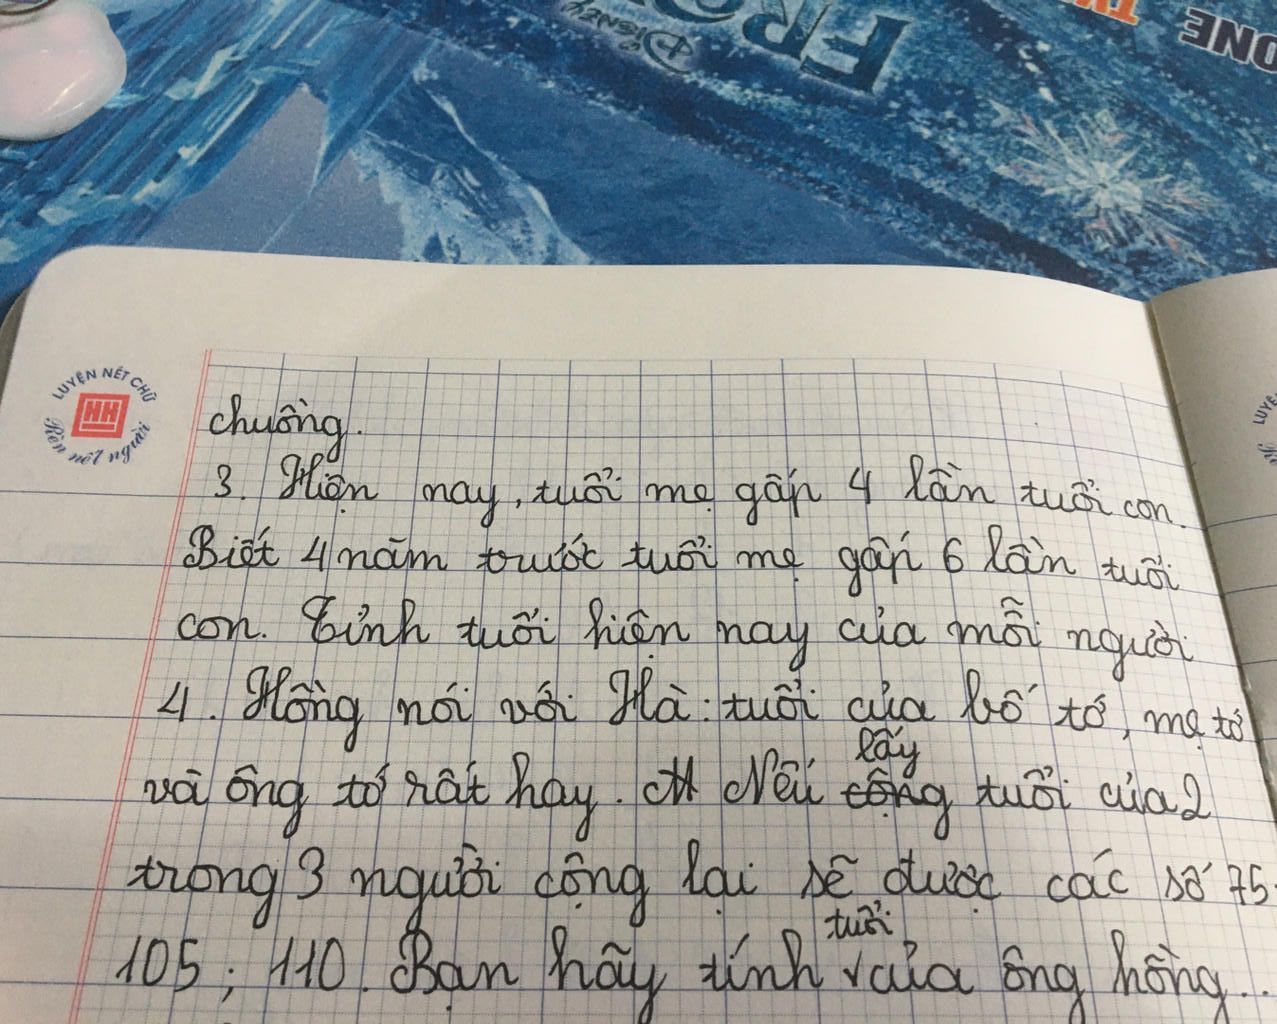 DISNEY
FRO
TY
ONE
LUYỆN NÉT CHỮ
HH
Rèn nết người
LUYỆ
chuồng.
3. Hiện nay, tuổi mẹ gấp 4 lần tuổi con.
Biết 4 năm trước tuổi mẹ gấp 6 lần tuổi
con. Tính tuổi hiện nay của mỗi người
4. Hồng nói với Hà: tuổi của bố tớ, mẹ tớ
và ông tớ rất hay. Nếu lấy tuổi của 2
trong 3 người cộng lại sẽ được các số 75.
105; 110. Bạn hãy tính tuổi của ông hồng..